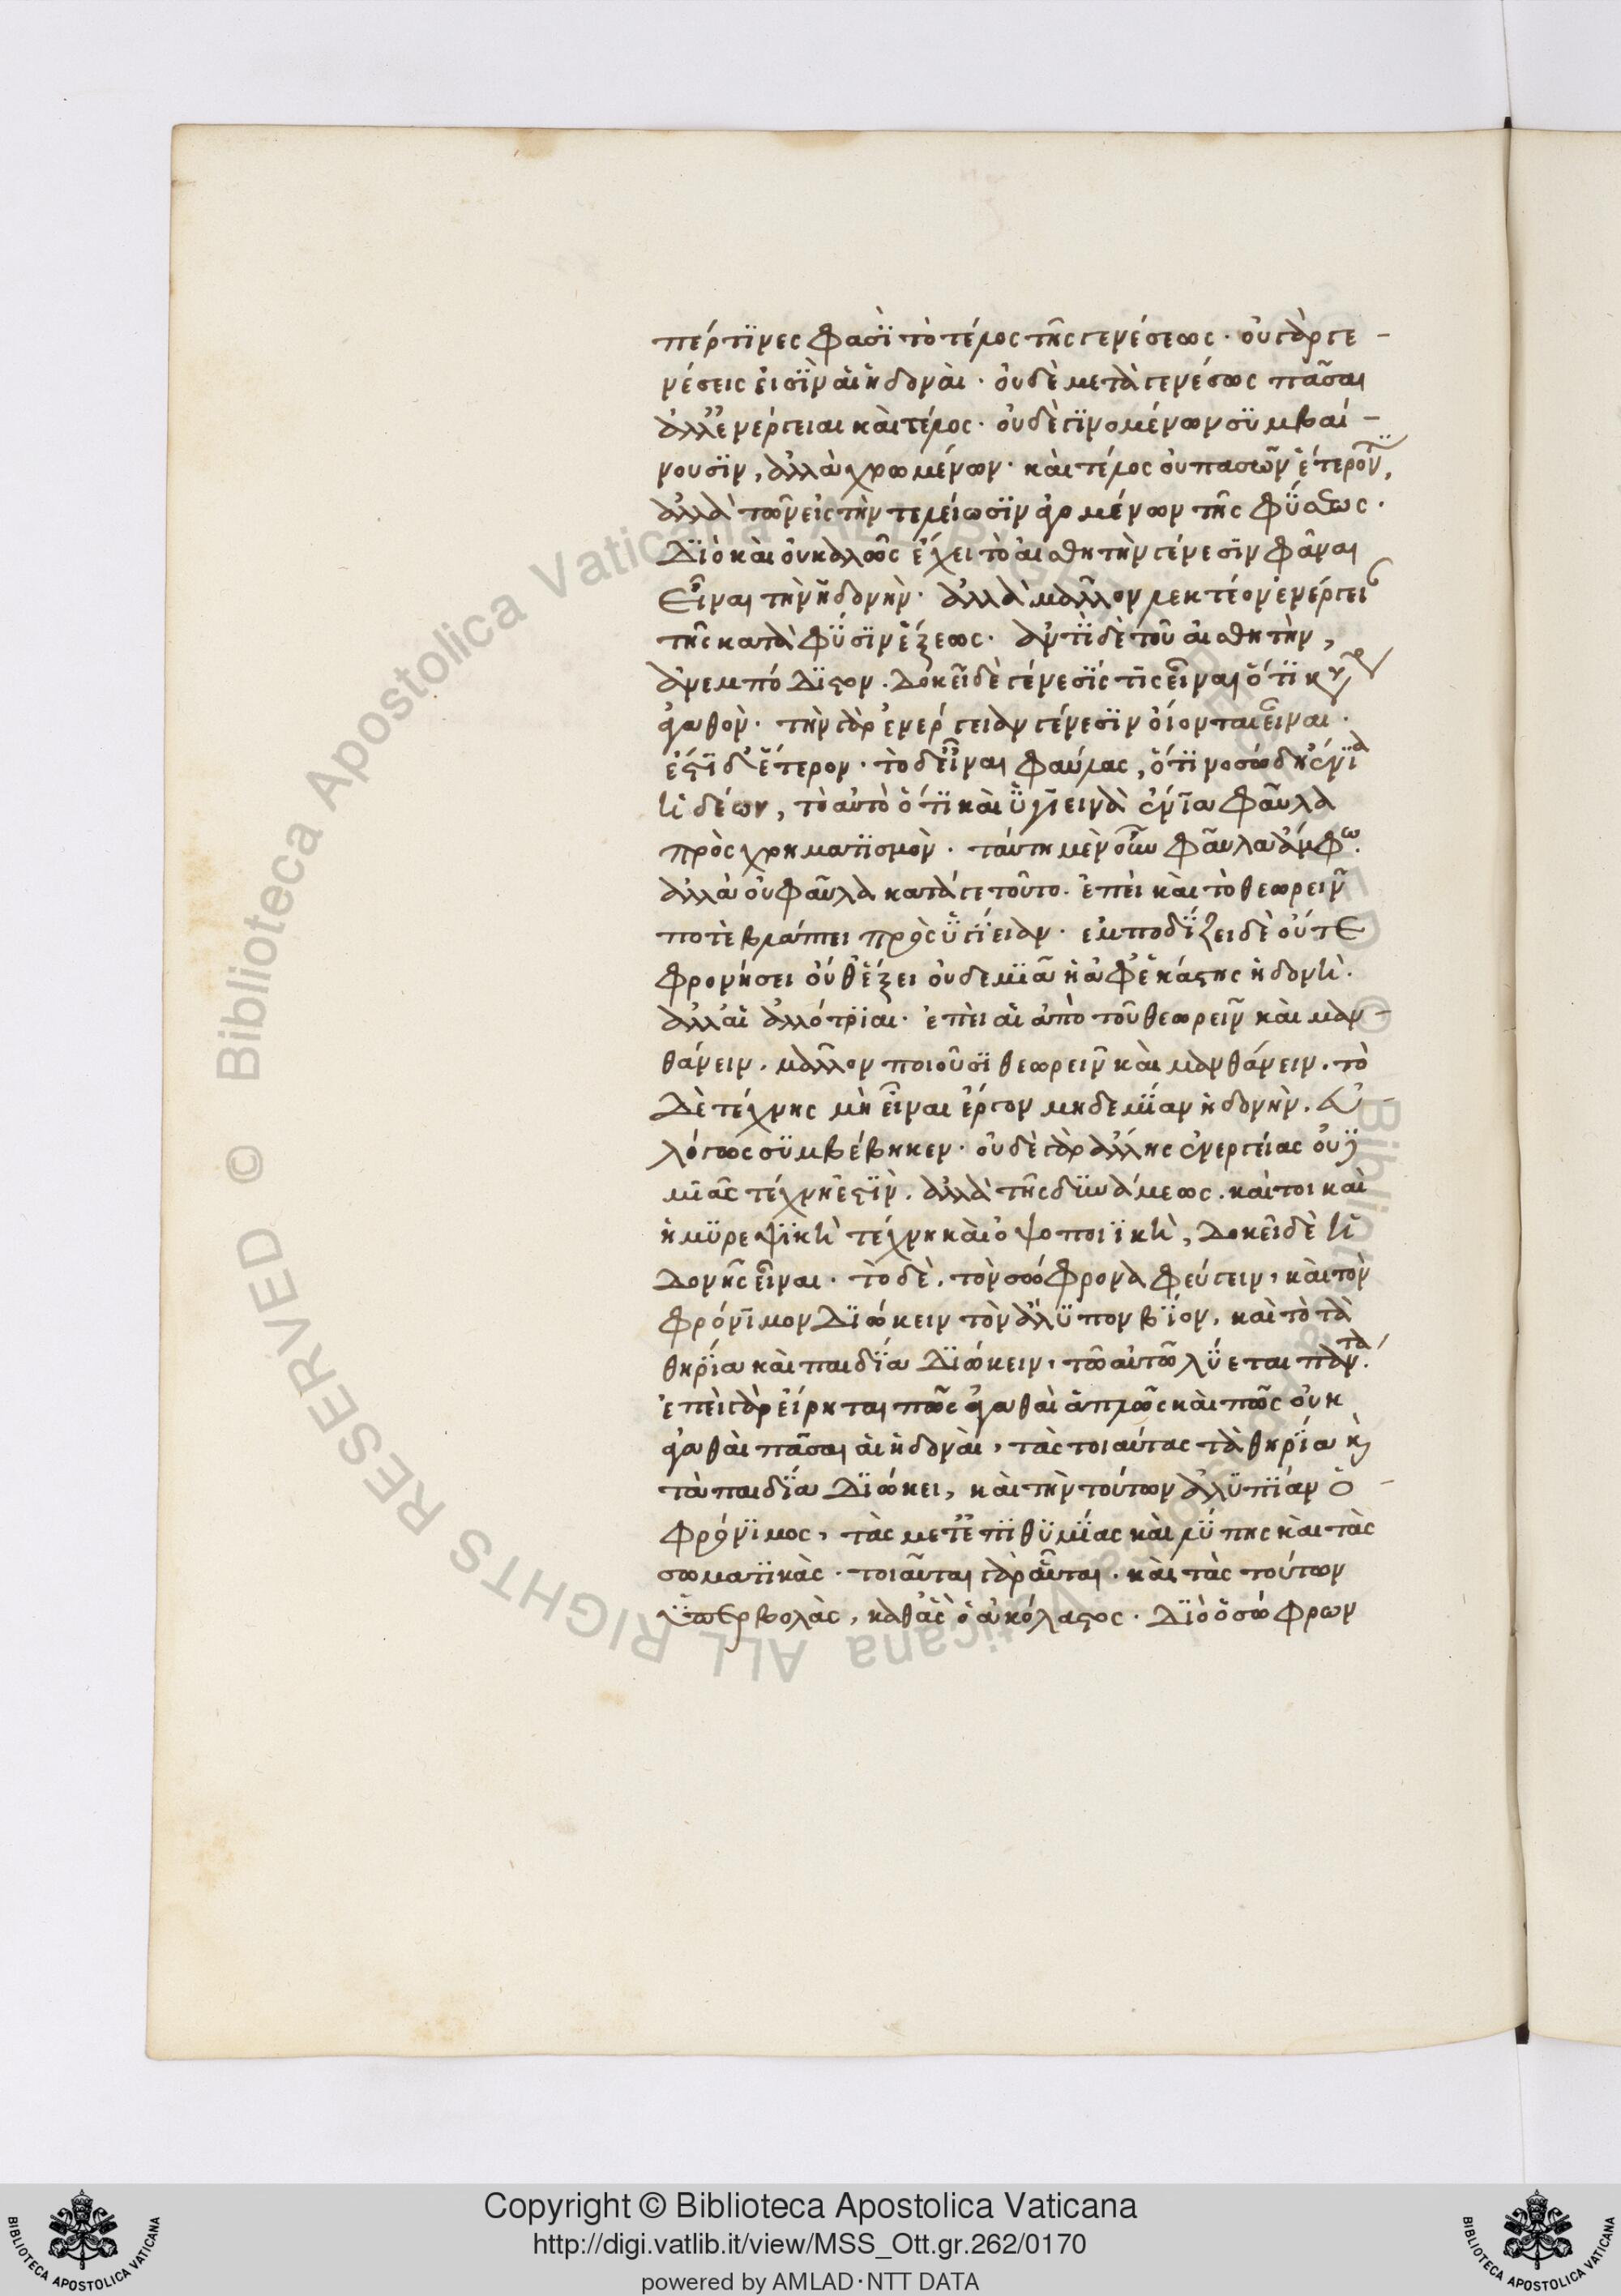 πέρ τϊνες φασϊ τὸ τέλος τῆς γενέσεως· οὐ γὰρ γε-
νέσεις εἰσϊν αἱ ἡδοναὶ· οὐδὲ μετὰ γενέσεως πᾶσαι
ἀλλ' ἐνέργειαι καὶ τέλος· οὐδὲ γϊνομένων σϋμβαί-
νουσϊν, ἀλλὰ χρωμένων· καὶ τέλος οὐ πασῶν ἕτερόν τϊ,
ἀλλὰ τῶν εἰς τὴν τελείωσϊν ἀγομένων τῆς φϋσεως·
Δϊὸ καὶ οὐ καλῶς ἔχει τὸ αἰσθητὴν γένεσϊν φάναι
εἶναι τὴν ἡδονὴν· ἀλλὰ μᾶλλον λεκτέον ἐνέργειαν
τῆς κατὰ φϋσϊν ἕξεως· ἀντϊ δὲ τοῦ αἰσθητὴν,
ἀνεμπόδϊστον. Δοκεῖ δὲ γένεσϊς τϊς εἶναι ὅτϊ κυρίως
ἀγαθὸν· τὴν γὰρ ἐνέργειαν γένεσϊν οἴονται εἶναι·
ἔστϊ δ' ἕτερον· τὸ δ' εἶναι φαύλας, ὅτϊ νοσώδη ἔνϊα
ἡδέων, τὸ αὐτὸ ὅτϊ καὶ ὑγϊεινὰ ἔνϊα φαῦλα
πρὸς χρηματϊσμὸν· ταύτη μὲν οὖν φαῦλα ἄμφω.
ἀλλὰ οὐ φαῦλα κατά γε τοῦτο· ἐπεὶ καὶ τὸ θεωρεῖν
ποτὲ βλάπτει πρὸς ὑγϊειαν· ἐμποδϊζει δὲ οὔτε
φρονήσει οὔθ' ἕξει οὐδεμϊᾶ ἡ ἀφ' ἑκάστης ἡδονὴ·
ἀλλ' αἱ ἀλλότρϊαι· ἐπεὶ αἱ ἀπὸ τοῦ θεωρεῖν καὶ μαν-
θάνειν, μᾶλλον ποιοῦσϊ θεωρεῖν καὶ μανθάνειν. τὸ
Δὲ τέχνης μὴ εἶναι ἔργον μηδεμϊαν ἡδονὴν, εὐ-
λόγως σϋμβέβηκεν· οὐδὲ γὰρ ἄλλης ἐνεργείας οὐδε
μϊᾶς τέχνη ἐστϊν. ἀλλὰ τῆς δϋνάμεως. καίτοι καὶ
ἡ μϋρεψϊκὴ τέχνη καὶ ὀψοποιϊκὴ, Δοκεῖ δὲ ἡ
Δονῆς εἶναι· τὸ δὲ, τὸν σώφρονα φεύγειν, καὶ τὸν
φρόνϊμον Δϊώκειν τὸν ἄλϋπον βϊον, καὶ τὸ τὰ
θηρϊα καὶ παιδϊα Δϊώκειν, τῶ αὐτῶ λϋεται πάντα.
ἐπεὶ γὰρ εἴρηται πῶς ἀγαθαὶ ἁπλῶς καὶ πῶς οὐκ
ἀγαθαὶ πᾶσαι αἱ ἡδοναὶ, τὰς τοιαύτας τὰ θηρϊα καὶ
τὰ παιδϊα Δϊώκει, καὶ τὴν τούτων ἀλϋπϊαν ὁ
φρόνϊμος, τὰς μετ' ἐπϊθϋμϊας καὶ λϋπης καὶ τὰς
σωματϊκὰς· τοιαῦται γὰρ αὗται. καὶ τὰς τούτων
ὑπερβολὰς, καθ' ἃς ὁ ἀκόλαστος· Δϊὸ ὁ σώφρων
Copyright © Biblioteca Apostolica Vaticana
http://digi.vatlib.it/view/MSS_Ott.gr.262/0170
powered by AMLAD·NTT DATA
BIBLIOTECA APOSTOLICA VATICANA
BIBLIOTECA APOSTOLICA VATICANA
© Biblioteca Apostolica Vaticana ALL RIGHTS RESERVED